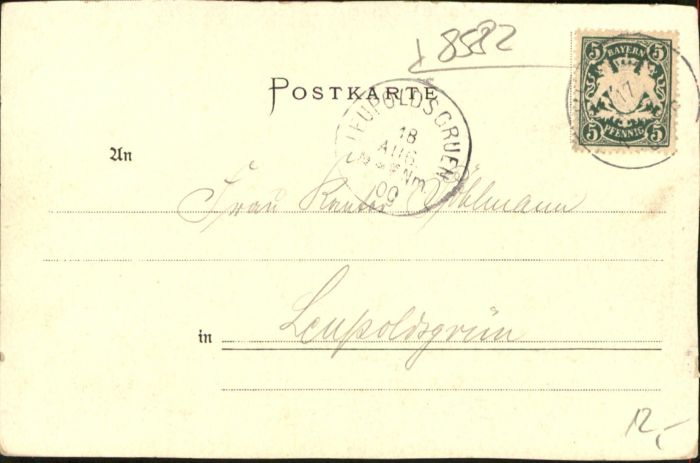 8582
5 BAYERN 5
5 PFENNIG 5
17
POSTKARTE
LEUPOLDSGRUEN
18
AUG.
Nm.
00
An
Frau Kantor
in Leupoldsgrün
12,-